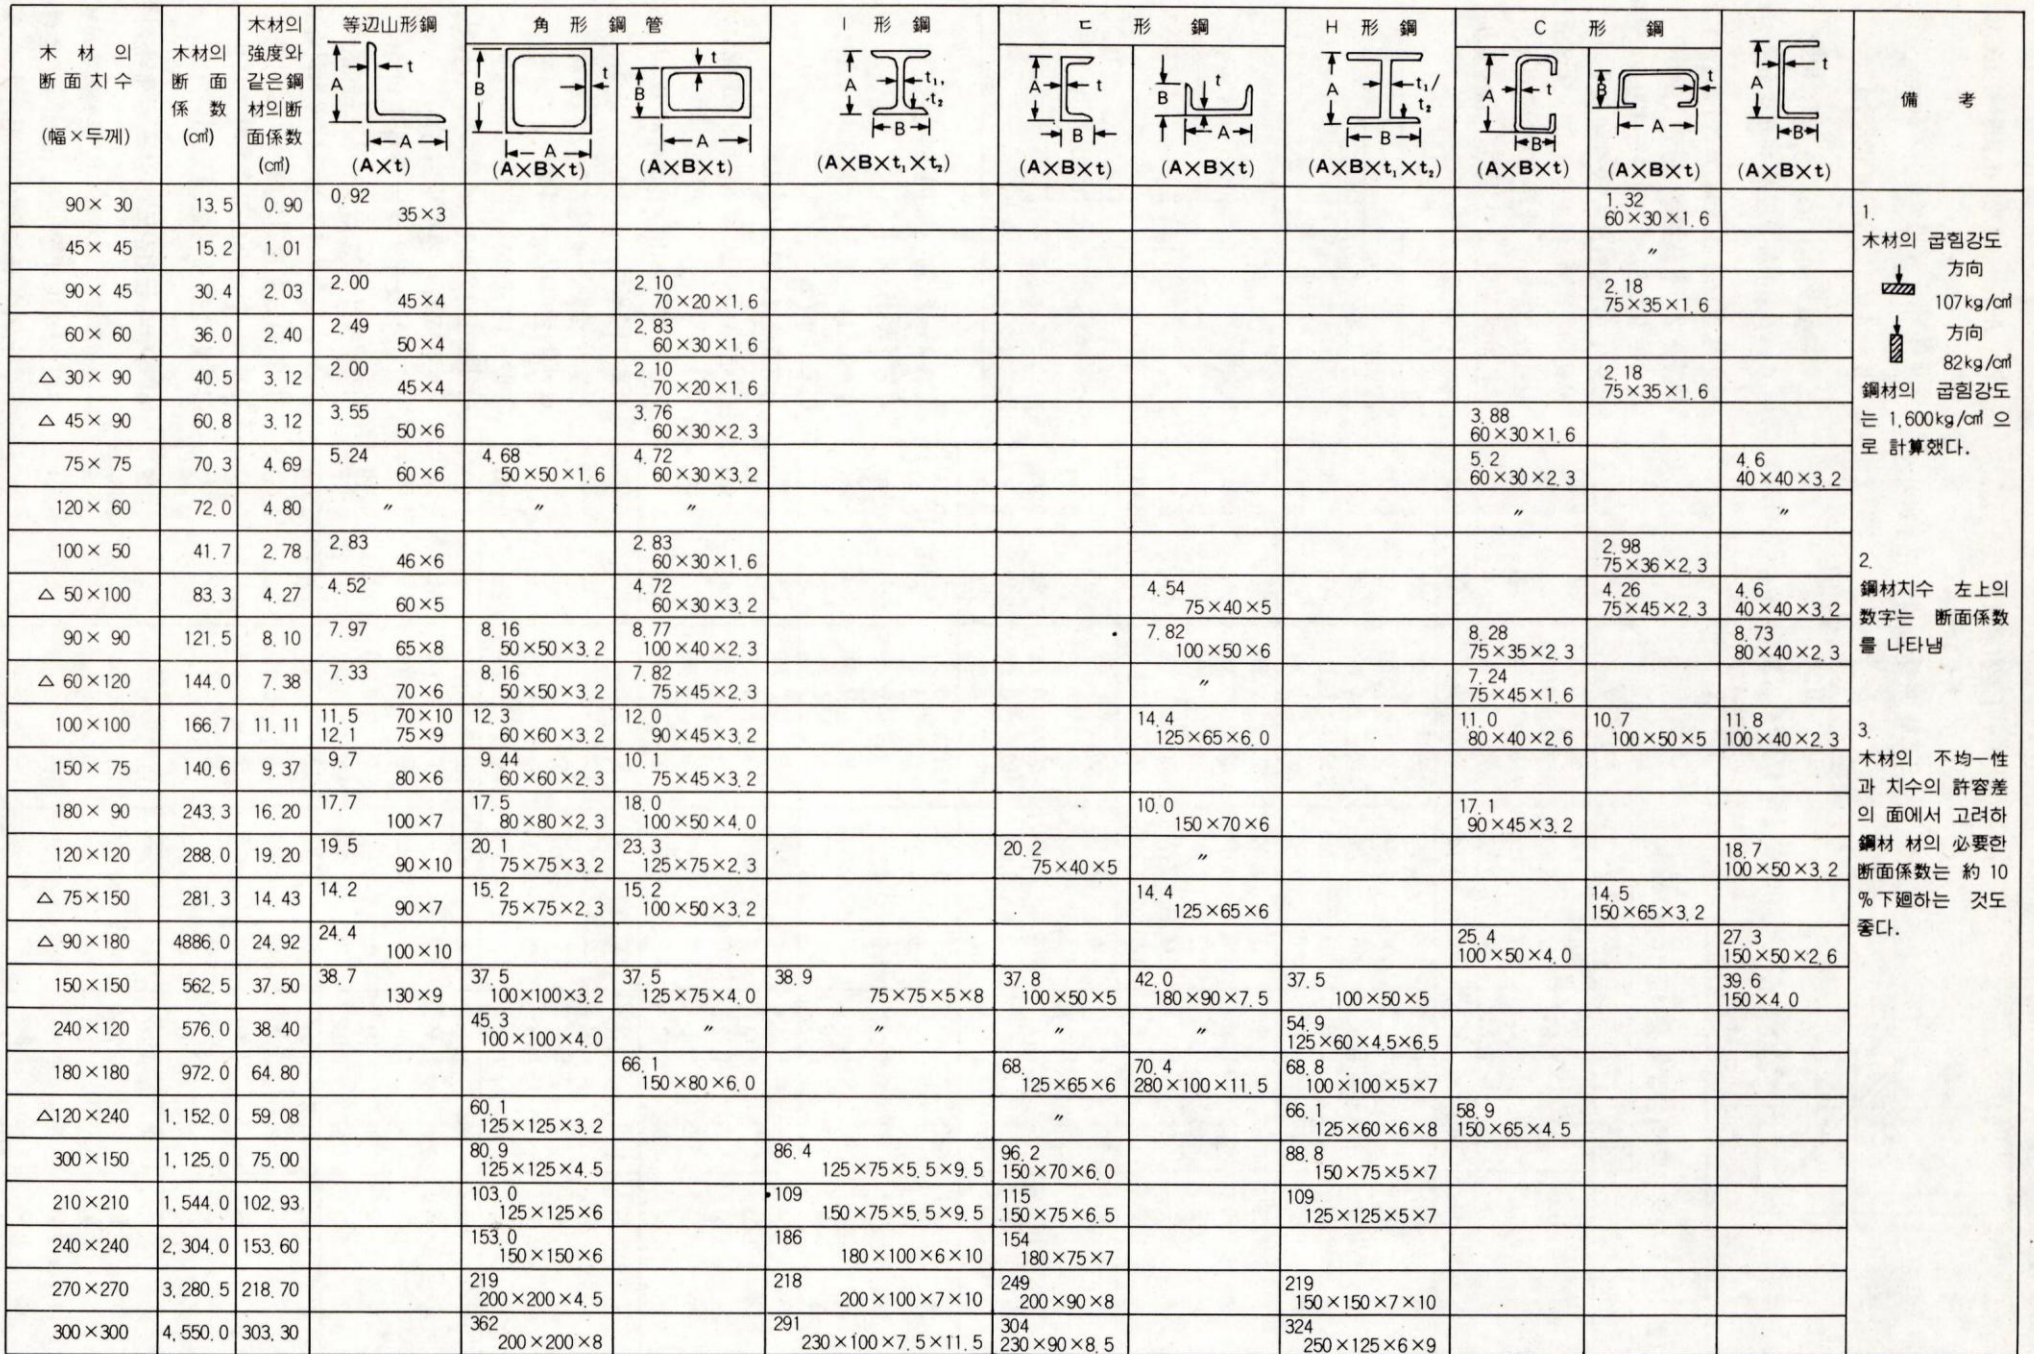 木材의 断面치수 (幅×두께)
木材의 断面係数 (㎤)
木材의 強度와 같은鋼材의断面係数 (㎤)
等辺山形鋼
A t A
(A×t)
角形鋼管
B t A
(A×B×t)
t B A
(A×B×t)
I 形鋼
A t₁, t₂ B
(A×B×t₁×t₂)
ㄷ 形鋼
A t B
(A×B×t)
B t A
(A×B×t)
H 形鋼
A t₁/ t₂ B
(A×B×t₁×t₂)
C 形鋼
A t B
(A×B×t)
B t A
(A×B×t)
A t B
(A×B×t)
備考
90×30 13.5 0.90 0.92 35×3 1.32 60×30×1.6
45×45 15.2 1.01 〃
90×45 30.4 2.03 2.00 45×4 2.10 70×20×1.6 2.18 75×35×1.6
60×60 36.0 2.40 2.49 50×4 2.83 60×30×1.6
△ 30×90 40.5 3.12 2.00 45×4 2.10 70×20×1.6 2.18 75×35×1.6
△ 45×90 60.8 3.12 3.55 50×6 3.76 60×30×2.3 3.88 60×30×1.6
75×75 70.3 4.69 5.24 60×6 4.68 50×50×1.6 4.72 60×30×3.2 5.2 60×30×2.3 4.6 40×40×3.2
120×60 72.0 4.80 〃 〃 〃 〃 〃
100×50 41.7 2.78 2.83 46×6 2.83 60×30×1.6 2.98 75×36×2.3
△ 50×100 83.3 4.27 4.52 60×5 4.72 60×30×3.2 4.54 75×40×5 4.26 75×45×2.3 4.6 40×40×3.2
90×90 121.5 8.10 7.97 65×8 8.16 50×50×3.2 8.77 100×40×2.3 7.82 100×50×6 8.28 75×35×2.3 8.73 80×40×2.3
△ 60×120 144.0 7.38 7.33 70×6 8.16 50×50×3.2 7.82 75×45×2.3 〃 7.24 75×45×1.6
100×100 166.7 11.11 11.5 70×10 12.1 75×9 12.3 60×60×3.2 12.0 90×45×3.2 14.4 125×65×6.0 11.0 80×40×2.6 10.7 100×50×5 11.8 100×40×2.3
150×75 140.6 9.37 9.7 80×6 9.44 60×60×2.3 10.1 75×45×3.2
180×90 243.3 16.20 17.7 100×7 17.5 80×80×2.3 18.0 100×50×4.0 10.0 150×70×6 17.1 90×45×3.2
120×120 288.0 19.20 19.5 90×10 20.1 75×75×3.2 23.3 125×75×2.3 20.2 75×40×5 〃 18.7 100×50×3.2
△ 75×150 281.3 14.43 14.2 90×7 15.2 75×75×2.3 15.2 100×50×3.2 14.4 125×65×6 14.5 150×65×3.2
△ 90×180 4886.0 24.92 24.4 100×10 25.4 100×50×4.0 27.3 150×50×2.6
150×150 562.5 37.50 38.7 130×9 37.5 100×100×3.2 37.5 125×75×4.0 38.9 75×75×5×8 37.8 100×50×5 42.0 180×90×7.5 37.5 100×50×5 39.6 150×4.0
240×120 576.0 38.40 45.3 100×100×4.0 〃 〃 〃 〃 54.9 125×60×4.5×6.5
180×180 972.0 64.80 66.1 150×80×6.0 68. 125×65×6 70.4 280×100×11.5 68.8 100×100×5×7
△120×240 1,152.0 59.08 60.1 125×125×3.2 〃 66.1 125×60×6×8 58.9 150×65×4.5
300×150 1,125.0 75.00 80.9 125×125×4.5 86.4 125×75×5.5×9.5 96.2 150×70×6.0 88.8 150×75×5×7
210×210 1,544.0 102.93 103.0 125×125×6 109 150×75×5.5×9.5 115 150×75×6.5 109 125×125×5×7
240×240 2,304.0 153.60 153.0 150×150×6 186 180×100×6×10 154 180×75×7
270×270 3,280.5 218.70 219 200×200×4.5 218 200×100×7×10 249 200×90×8 219 150×150×7×10
300×300 4,550.0 303.30 362 200×200×8 291 230×100×7.5×11.5 304 230×90×8.5 324 250×125×6×9
1.
木材의 굽힘강도
方向
107kg/㎠
方向
82kg/㎠
鋼材의 굽힘강도
는 1,600kg/㎠ 으
로 計算했다.
2.
鋼材치수 左上의
数字는 断面係数
를 나타냄
3.
木材의 不均一性
과 치수의 許容差
의 面에서 고려하
鋼材 材의 必要한
断面係数는 約 10
%下廻하는 것도
좋다.